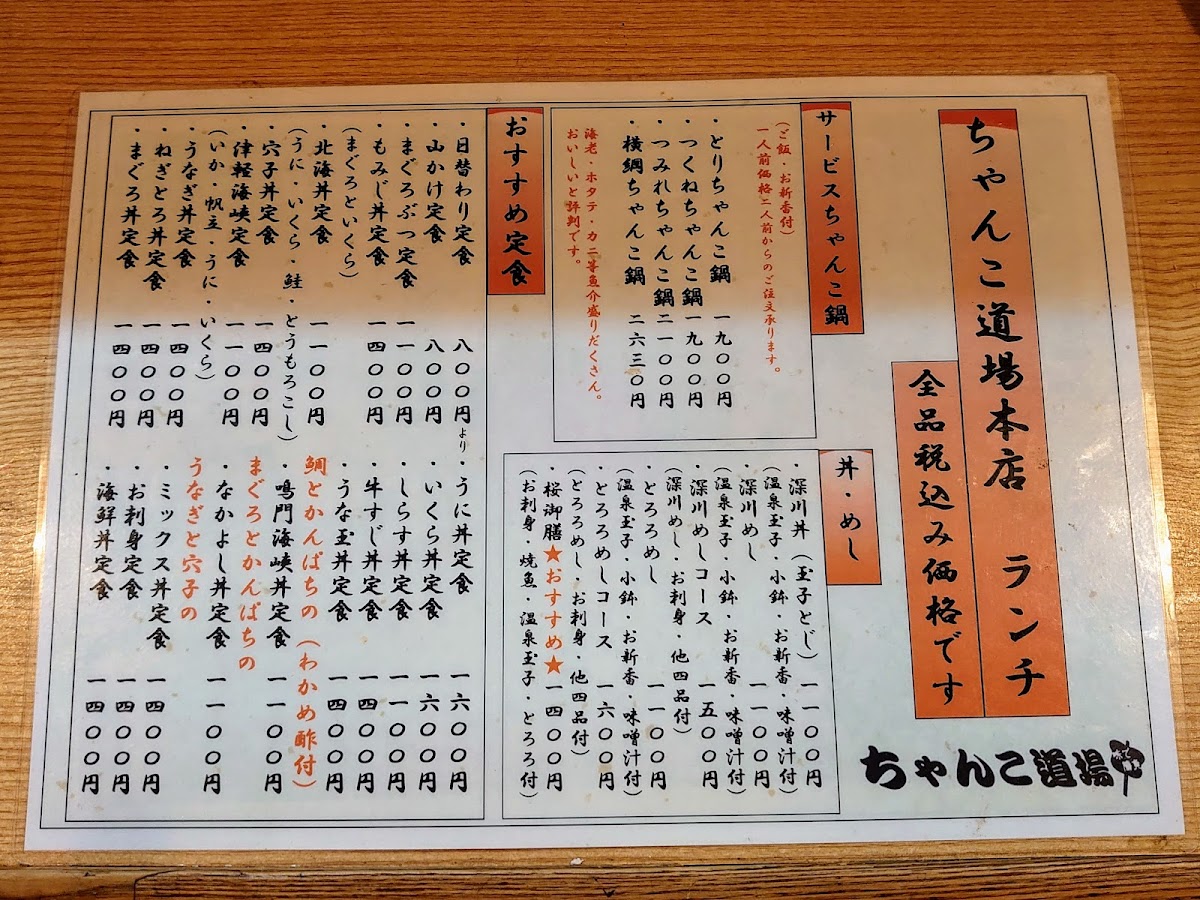 ちゃんこ道場本店 ランチ
全品税込み価格です
ちゃんこ道場
サービスちゃんこ鍋
(ご飯・お新香付)
一人前価格二人前からのご注文承ります。
・とりちゃんこ鍋 一九〇〇円
・つくねちゃんこ鍋 一九〇〇円
・つみれちゃんこ鍋 二一〇〇円
・横綱ちゃんこ鍋 二六三〇円
海老・ホタテ・カニ等魚介盛りだくさん。
おいしいと評判です。
丼・めし
・深川丼(玉子とじ) 一一〇〇円
(温泉玉子・小鉢・お新香・味噌汁付)
・深川めし 一一〇〇円
(温泉玉子・小鉢・お新香・味噌汁付)
・深川めしコース 一五〇〇円
(深川めし・お刺身・他四品付)
・とろろめし 一一〇〇円
(温泉玉子・小鉢・お新香・味噌汁付)
・とろろめしコース 一六〇〇円
(とろろめし・お刺身・他四品付)
・桜御膳★おすすめ★ 一四〇〇円
(お刺身・焼魚・温泉玉子・とろろ付)
おすすめ定食
・日替わり定食 八〇〇円より
・山かけ定食 八〇〇円
・まぐろぶつ定食 一一〇〇円
・もみじ丼定食 一四〇〇円
(まぐろといくら)
・北海丼定食 一一〇〇円
(うに・いくら・鮭・とうもろこし)
・穴子丼定食 一四〇〇円
・津軽海峡定食 一一〇〇円
(いか・帆立・うに・いくら)
・うなぎ丼定食 一四〇〇円
・ねぎとろ丼定食 一四〇〇円
・まぐろ丼定食 一四〇〇円
・うに丼定食 一六〇〇円
・いくら丼定食 一六〇〇円
・しらす丼定食 一一〇〇円
・牛すじ丼定食 一四〇〇円
・うな玉丼定食 一四〇〇円
鯛とかんぱちの(わかめ酢付)
・鳴門海峡丼定食 一一〇〇円
まぐろとかんぱちの
・なかよし丼定食 一一〇〇円
うなぎと穴子の
・ミックス丼定食 一四〇〇円
・お刺身定食 一四〇〇円
・海鮮丼定食 一四〇〇円